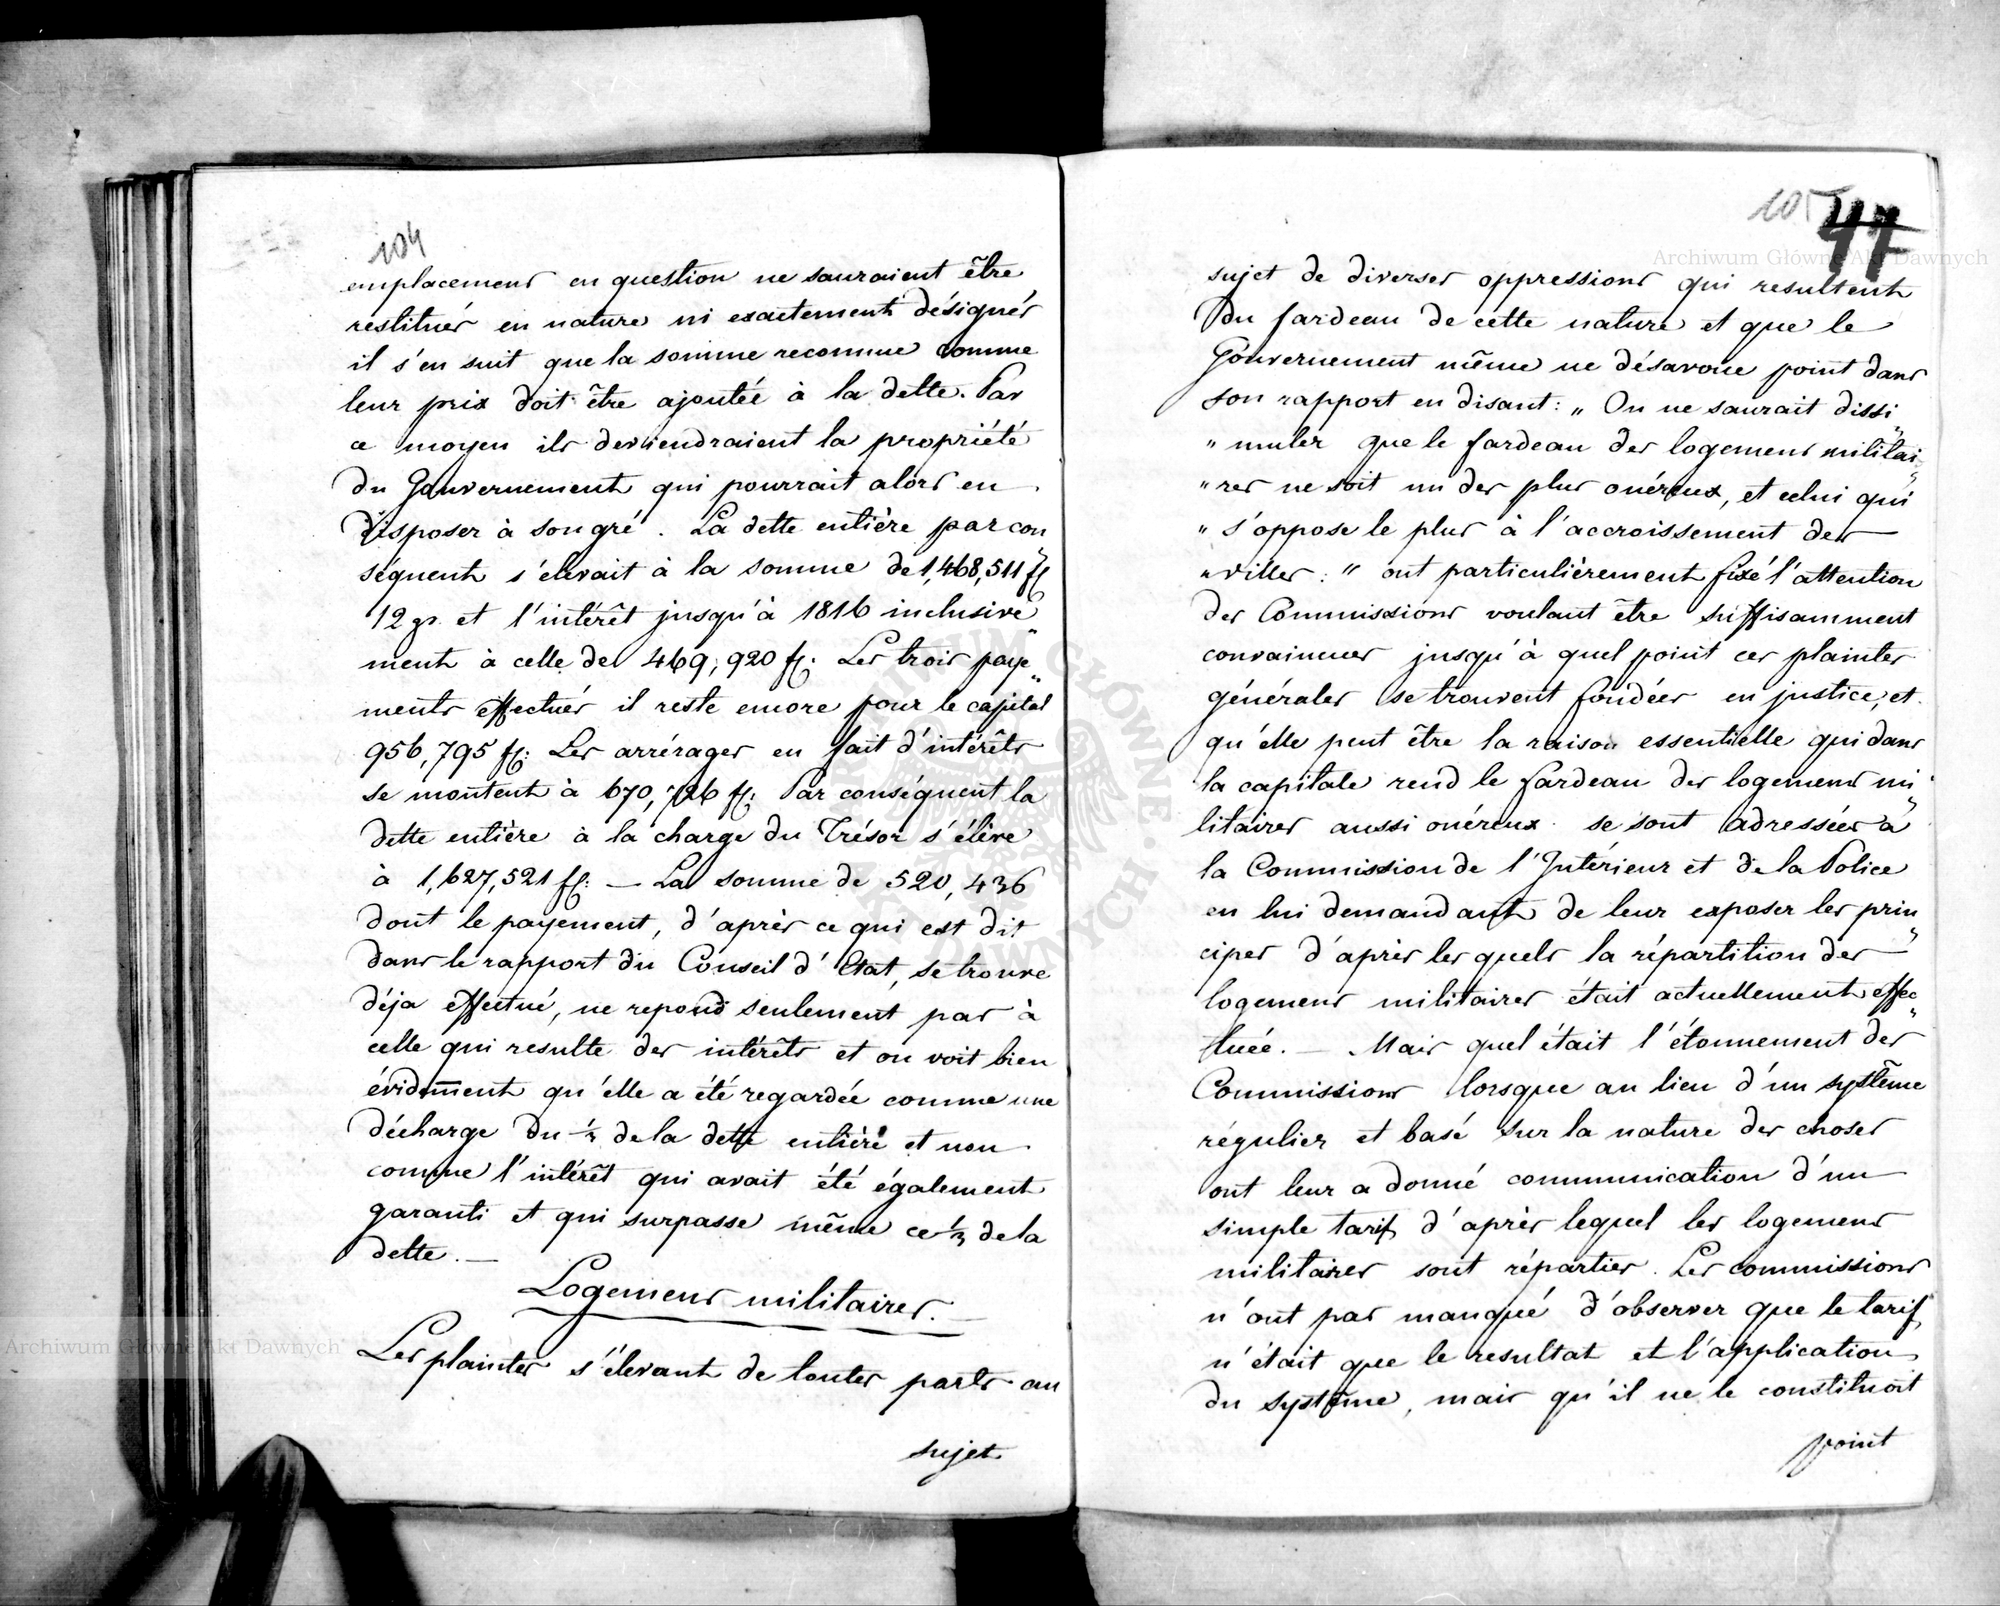 104
emplacemens en question ne sauraient être
restitués en nature ni exactement désignés
il s'en suit que la somme reconnue comme
leur prix doit être ajoutée à la dette. Par
ce moyen ils deviendraient la propriété
du Gouvernement qui pourrait alors en
disposer à son gré. La dette entière par con„
séquent s'elevait à la somme de 1,468,511 fl
12 gr. et l'intérêt jusqu'à 1816 inclusive„
ment à celle de 469,920 fl: Les trois paye„
ments effectués il reste encore pour le capital
956,795 fl: Les arrérages en fait d'intérêts
se montent à 670,726 fl: Par conséquent la
dette entière à la charge du Trésor s'élève
à 1,627,521 fl: — La somme de 520,436
dont le payement, d'après ce qui est dit
dans le rapport du Conseil d'Etat, se trouve
déja effectué, ne repond seulement pas à
celle qui resulte des intérêts et on voit bien
évidemment qu'elle a été regardée comme une
décharge du ⅓ de la dette entière et non
comme l'intérêt qui avait été également
garanti et qui surpasse même ce ⅓ de la
dette. —
Logemens militaires. —
Les plaintes s'élevant de toutes parts au
sujet
105 47
sujet de diverses oppressions qui resultent
du fardeau de cette nature et que le
Gouvernement même ne désavoue point dans
son rapport en disant: „ On ne saurait dissi„
„ muler que le fardeau des logemens militai„
„ res ne soit un des plus onéreux, et celui qui
„ s'oppose le plus à l'accroissement des —
„ villes: “ ont particulièrement fixé l'attention
des Commissions voulant être suffisamment
convaincues jusqu'à quel point ces plaintes
générales se trouvent fondées en justice, et
qu'elle peut être la raison essentielle qui dans
la capitale rend le fardeau des logemens mi„
litaires aussi onéreux se sont adressées à
la Commission de l'Intérieur et de la Police
en lui demandant de leur exposer les prin„
cipes d'après les quels la répartition des —
logemens militaires était actuellement effec„
tuée. — Mais quel était l'étonnement des
Commissions lorsque au lieu d'un système
régulier et basé sur la nature des choses
ont leur a donné communication d'un
simple tarif d'après lequel les logemens
militaires sont répartis. Les commissions
n'ont pas manqué d'observer que le tarif
n'était que le resultat et l'application
du système, mais qu'il ne le constituoit
point
Archiwum Główne Akt Dawnych
Archiwum Główne Akt Dawnych